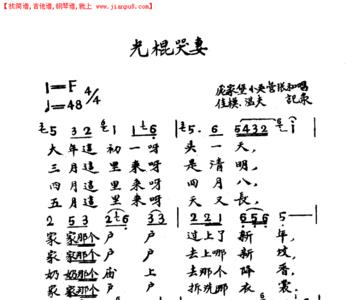 【找简谱,吉他谱,钢琴谱,就上 www.jianpu8.com】
光棍哭妻
1=F 4/4
♩=48
庞家堡小英管张和唱
佳模、温夫 記录
5 3 2 1 1 6 | 5. 6 5432 1
大年這初一呀 头一天,
三月這里来呀 是清明,
四月這里来呀 四月八,
五月這里来呀 天又長,
2 53 216 33 | 2 21 656 5—
家家那个户户 过上了新年,
家家那个户户 去上哪新坟,
奶奶那个庙上 去那个降香,
家家那个户户 拆洗那衣裳